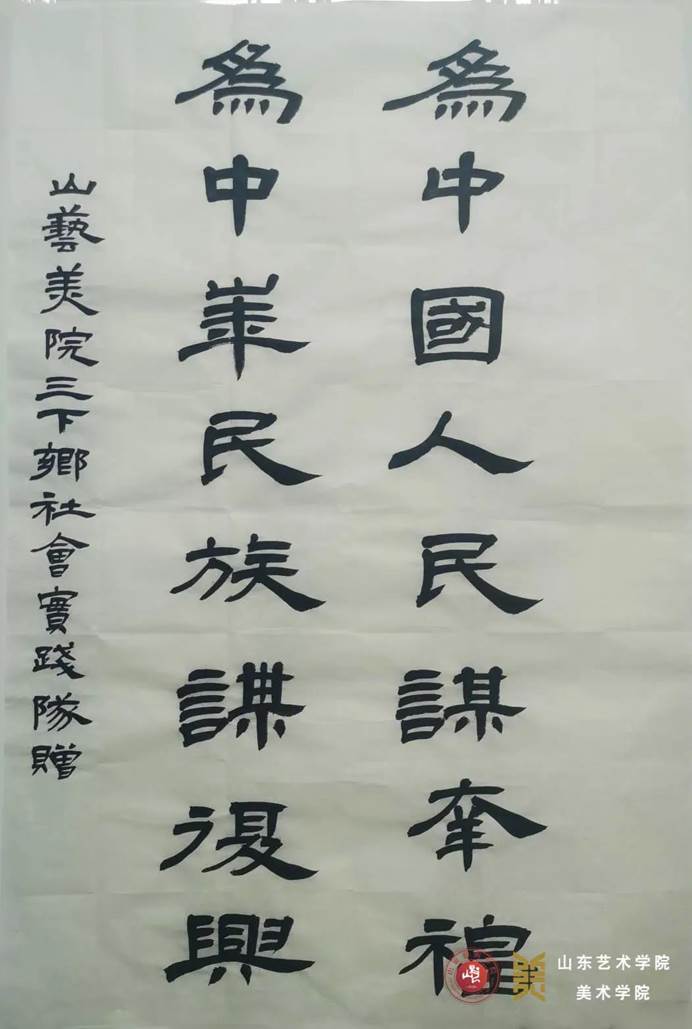 為中國人民謀幸福
為中華民族謀復興
山藝美院三下鄉社會實踐隊贈
山东艺术学院
美术学院